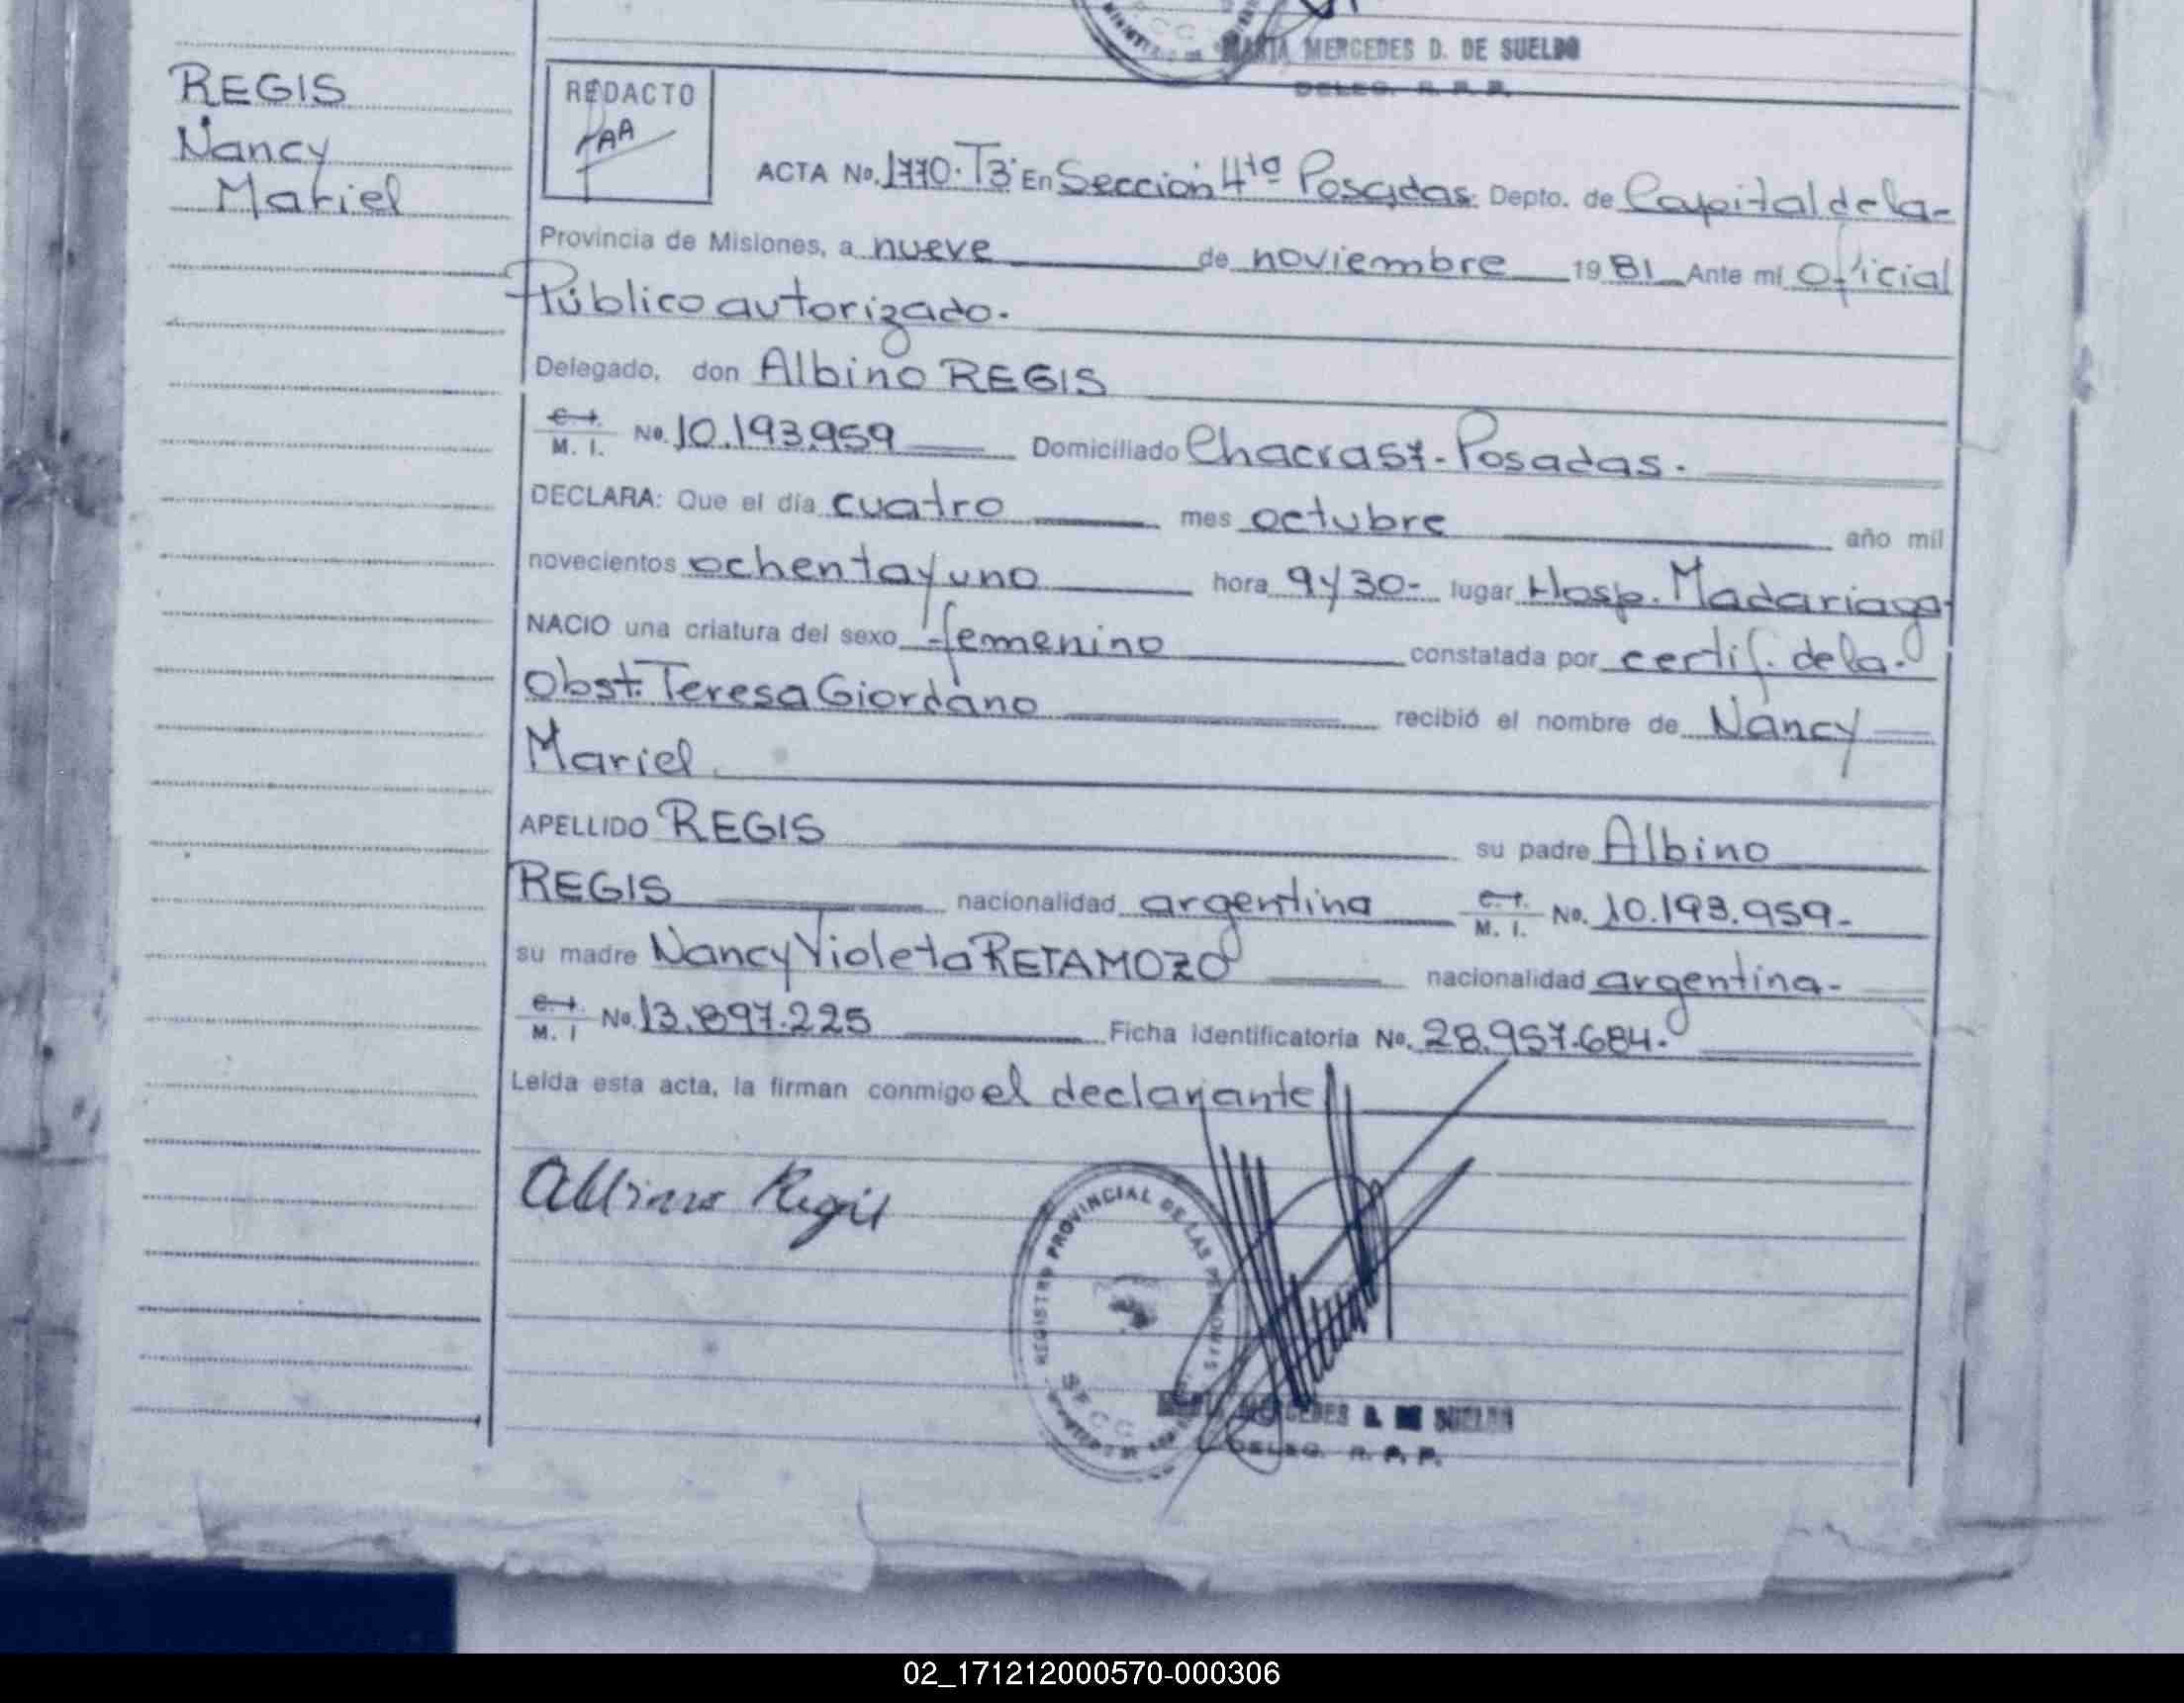 MARTA MERCEDES D. DE SUELDO
DELEG. R. P. P.
REGIS
Nancy
Mariel
REDACTO
ACTA No. 1770. T3° En Sección 4ta Posadas. Depto. de Capital de la-
Provincia de Misiones, a nueve de noviembre 1981 Ante mi Oficial
Público autorizado.
Delegado, don Albino REGIS
C. I.
M. I. No. 10.193.959 Domiciliado Chacra 57- Posadas.
DECLARA: Que el día cuatro mes octubre año mil
novecientos ochenta y uno hora 9 y 30- lugar Hosp. Madariaga
NACIO una criatura del sexo femenino constatada por certif. de la.
Obst. Teresa Giordano recibió el nombre de Nancy
Mariel
APELLIDO REGIS su padre Albino
REGIS nacionalidad argentina C. I. M. I. No. 10.193.959-
su madre Nancy Violeta RETAMOZO nacionalidad argentina-
C. I.
M. I No. 13.897.225 Ficha identificatoria No. 28.957.684.
Leída esta acta, la firman conmigo el declarante
Albino Regis
REGISTRO PROVINCIAL DE LAS PERSONAS
MERCEDES D. DE SUELDO
DELEG. R. P. P.
02_171212000570-000306